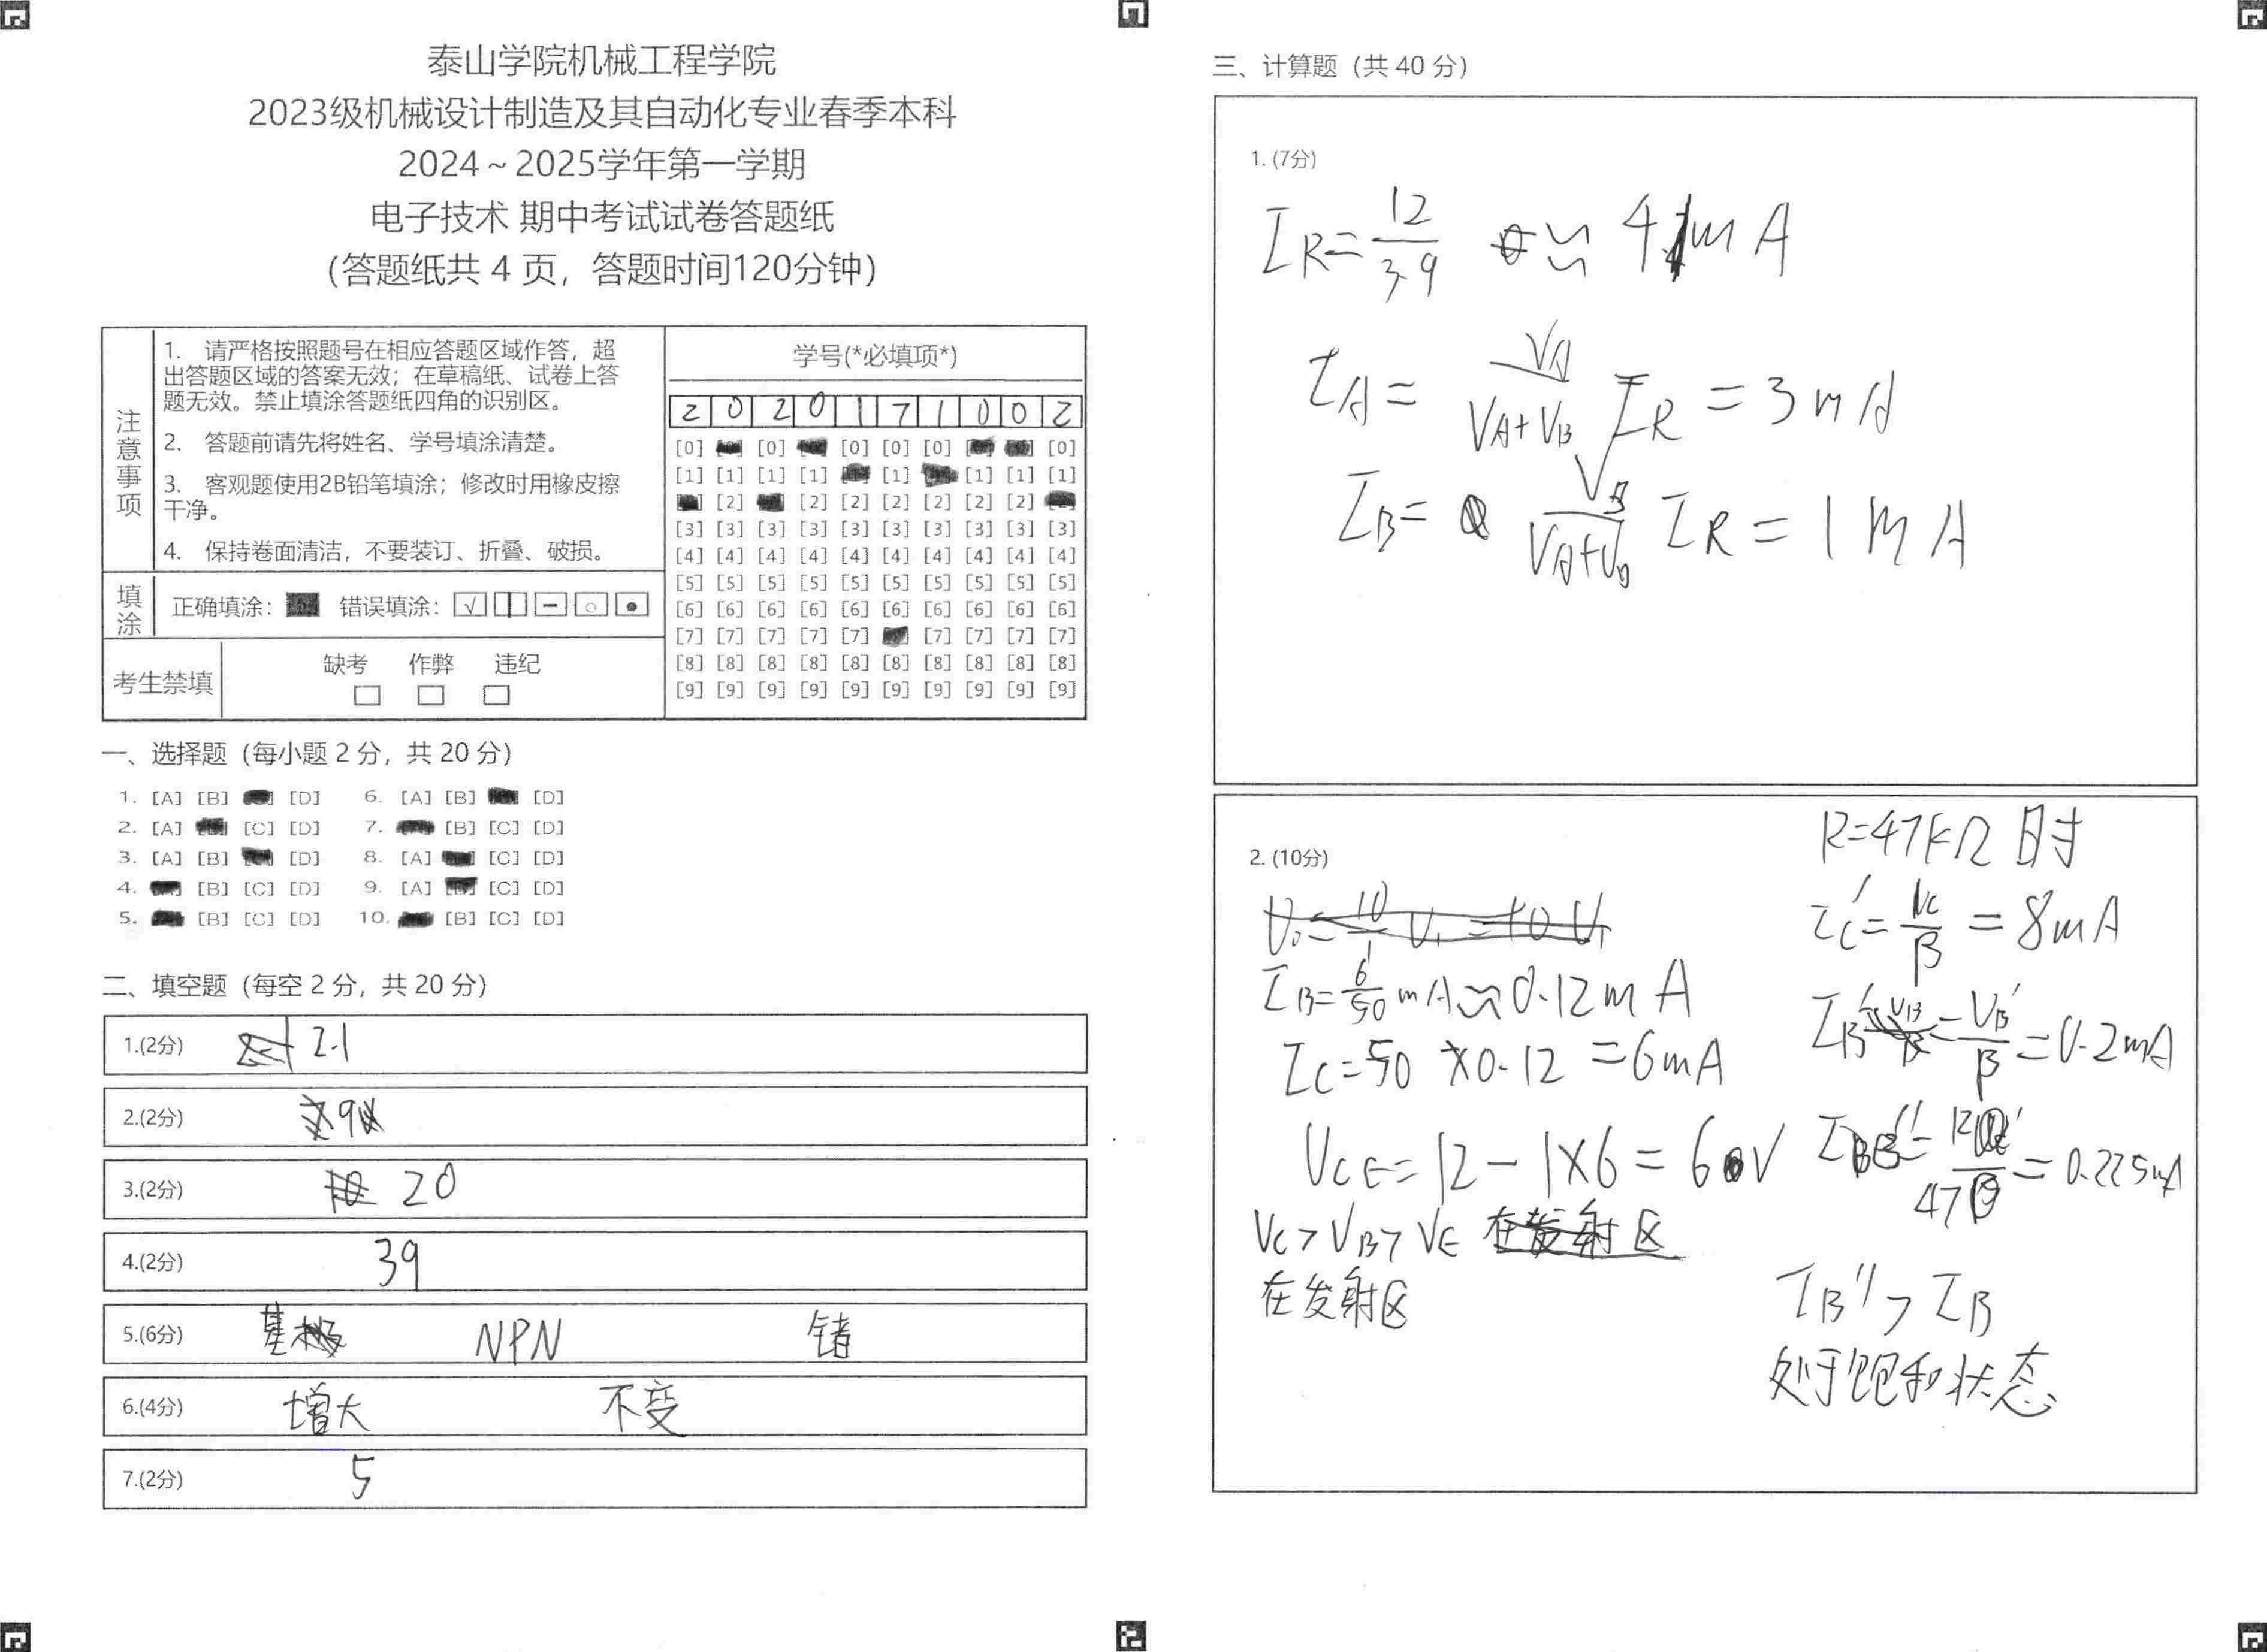 泰山学院机械工程学院
2023级机械设计制造及其自动化专业春季本科
2024～2025学年第一学期
电子技术 期中考试试卷答题纸
（答题纸共 4 页，答题时间120分钟）
注意事项
1. 请严格按照题号在相应答题区域作答，超
出答题区域的答案无效；在草稿纸、试卷上答
题无效。禁止填涂答题纸四角的识别区。
2. 答题前请先将姓名、学号填涂清楚。
3. 客观题使用2B铅笔填涂；修改时用橡皮擦
干净。
4. 保持卷面清洁，不要装订、折叠、破损。
填涂
正确填涂： 错误填涂：
考生禁填
缺考 作弊 违纪
学号(*必填项*)
2 0 2 0 1 7 1 0 0 2
[0] [0] [0] [0] [0] [0]
[1] [1] [1] [1] [1] [1] [1] [1]
[2] [2] [2] [2] [2] [2] [2]
[3] [3] [3] [3] [3] [3] [3] [3] [3] [3]
[4] [4] [4] [4] [4] [4] [4] [4] [4] [4]
[5] [5] [5] [5] [5] [5] [5] [5] [5] [5]
[6] [6] [6] [6] [6] [6] [6] [6] [6] [6]
[7] [7] [7] [7] [7] [7] [7] [7] [7]
[8] [8] [8] [8] [8] [8] [8] [8] [8] [8]
[9] [9] [9] [9] [9] [9] [9] [9] [9] [9]
一、选择题（每小题 2 分，共 20 分）
1. [A] [B] [D] 6. [A] [B] [D]
2. [A] [C] [D] 7. [B] [C] [D]
3. [A] [B] [D] 8. [A] [C] [D]
4. [B] [C] [D] 9. [A] [C] [D]
5. [B] [C] [D] 10. [B] [C] [D]
二、填空题（每空 2 分，共 20 分）
1.(2分) 2.1
2.(2分) 9
3.(2分) 20
4.(2分) 39
5.(6分) 基 NPN 锗
6.(4分) 增大 不变
7.(2分) 5
三、计算题（共 40 分）
1. (7分)
IR=12/3.9 ≈ 4mA
IA= VA/(VA+VB) IR = 3mA
IB= VB/(VA+VB) IR = 1mA
2. (10分)
IB=6/50 mA≈0.12mA
IC=50×0.12=6mA
VCE=12-1×6=6V
VC>VB>VE
在发射区
R=47kΩ时
IC'=VC/β=8mA
=VB'/β=0.2mA
=0.225mA
IB''>IB
处于饱和状态